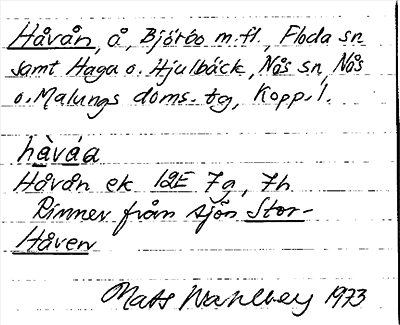 Håvån, å, Björbo m.fl., Floda sn
samt Haga o. Hjulbäck, Nås sn, Nås
o. Malungs doms.-tg, Kopp. l.
hàváa
Håvån ek 12E 7g, 7h
Rinner från sjön Stor-
Håven
Mats Wahlberg 1973